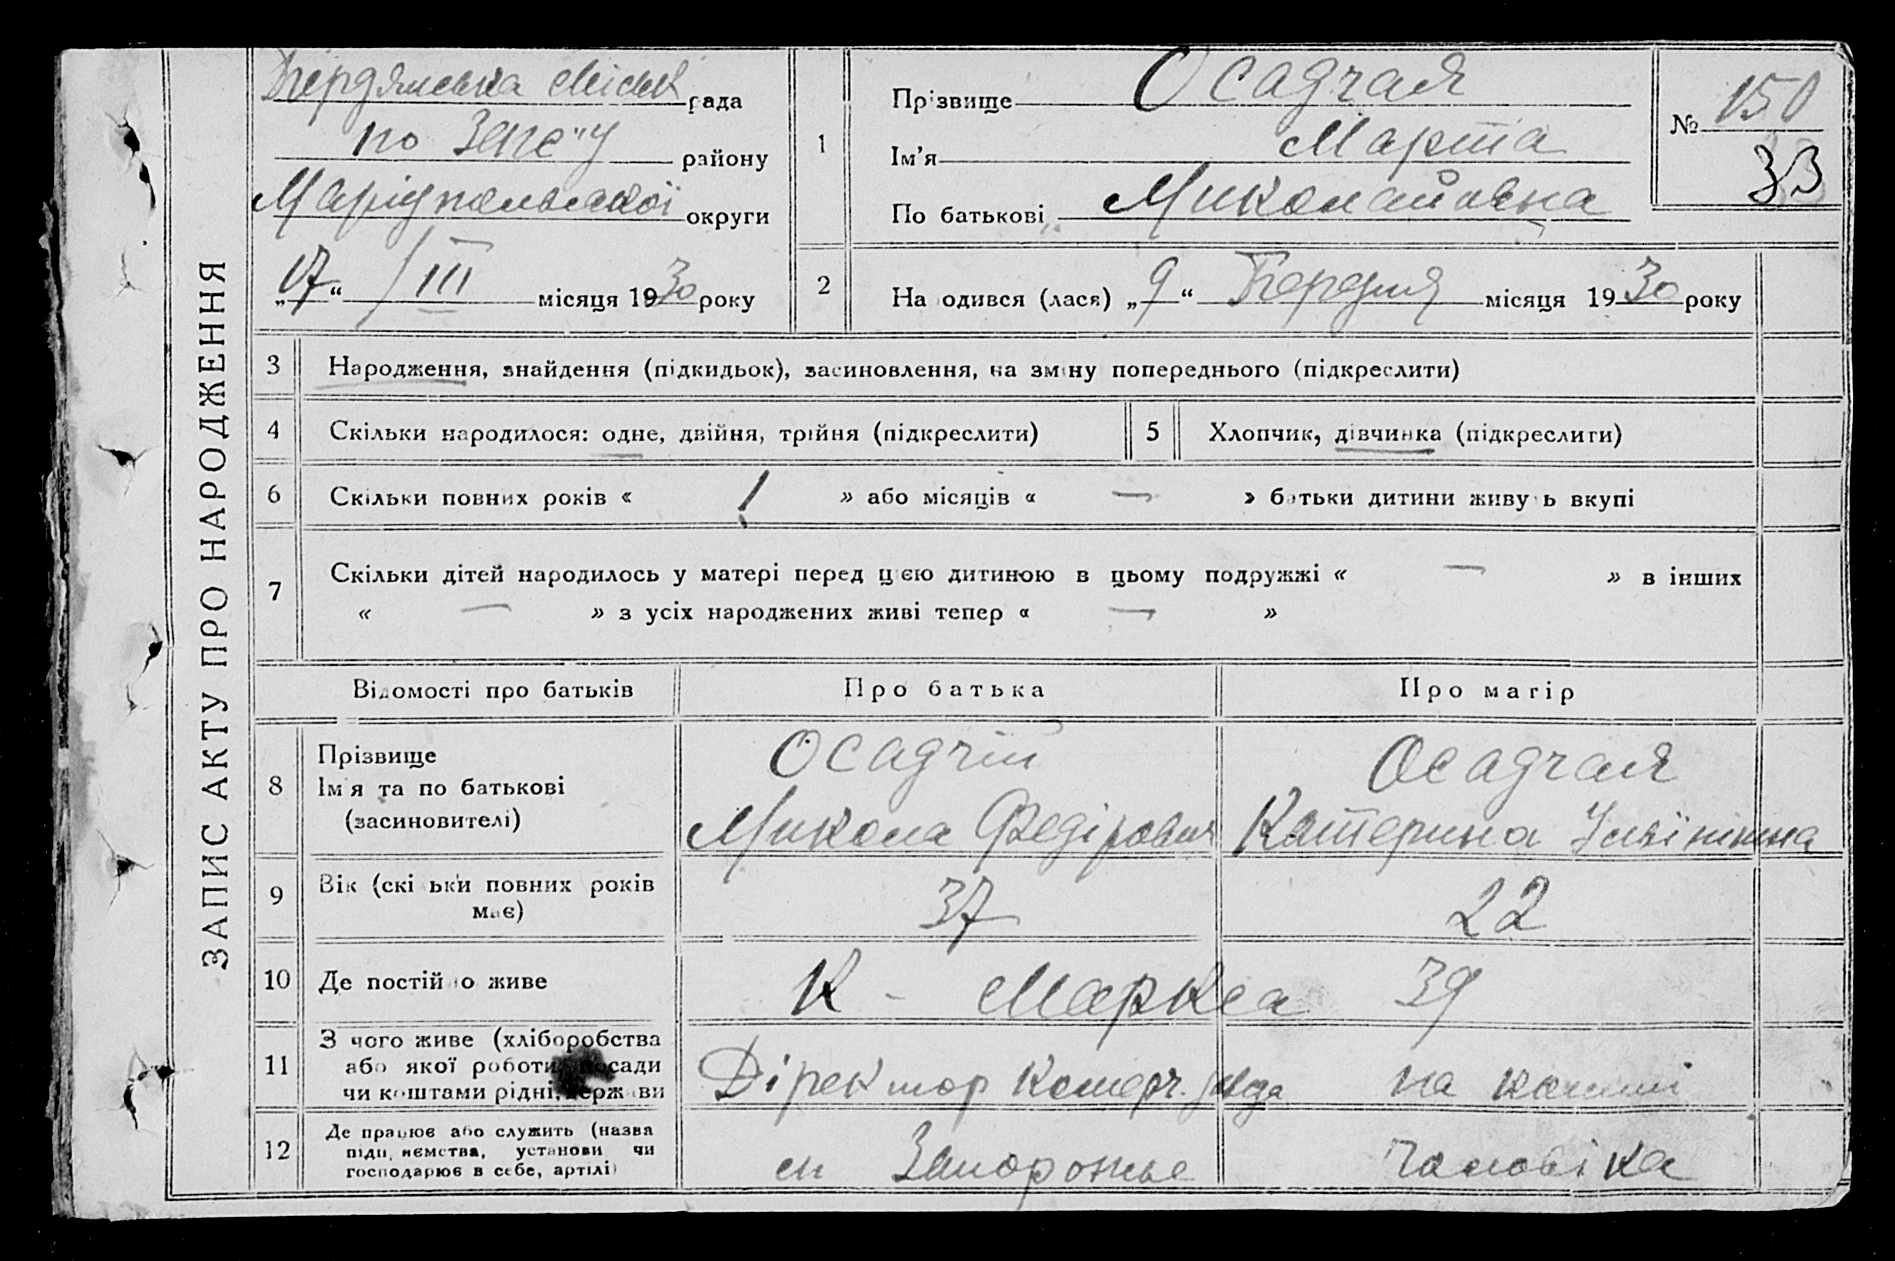 ЗАПИС АКТУ ПРО НАРОДЖЕННЯ
Бердянська міськ рада
по району
Маріупольської округи
„17“ /III місяця 1930 року
1
Прізвище Осадчая
Ім'я Марта
По батькові Миколаївна
№ 150
33
2
Народився (лася) „9“ Березня місяця 1930 року
3 Народження, знайдення (підкидьок), засиновлення, на зміну попереднього (підкреслити)
4 Скільки народилося: одне, двійня, трійня (підкреслити)
5 Хлопчик, дівчинка (підкреслити)
6 Скільки повних років « 1 » або місяців « — » батьки дитини живуть вкупі
7 Скільки дітей народилось у матері перед цією дитиною в цьому подружжі « — » в інших
« — » з усіх народжених живі тепер « — »
Відомості про батьків Про батька Про матір
8 Прізвище
Ім'я та по батькові
(засиновителі)
Осадчий
Микола Федірович
Осадчая
Катерина
9 Вік (скільки повних років
має)
37 22
10 Де постійно живе К - Маркса 39
11 З чого живе (хліборобства
або якої роботи, посади
чи коштами рідні, держави
Діректор на кошті
12 Де працює або служить (назва
підприємства, установи чи
господарює в себе, артілі)
Запорожье чоловіка